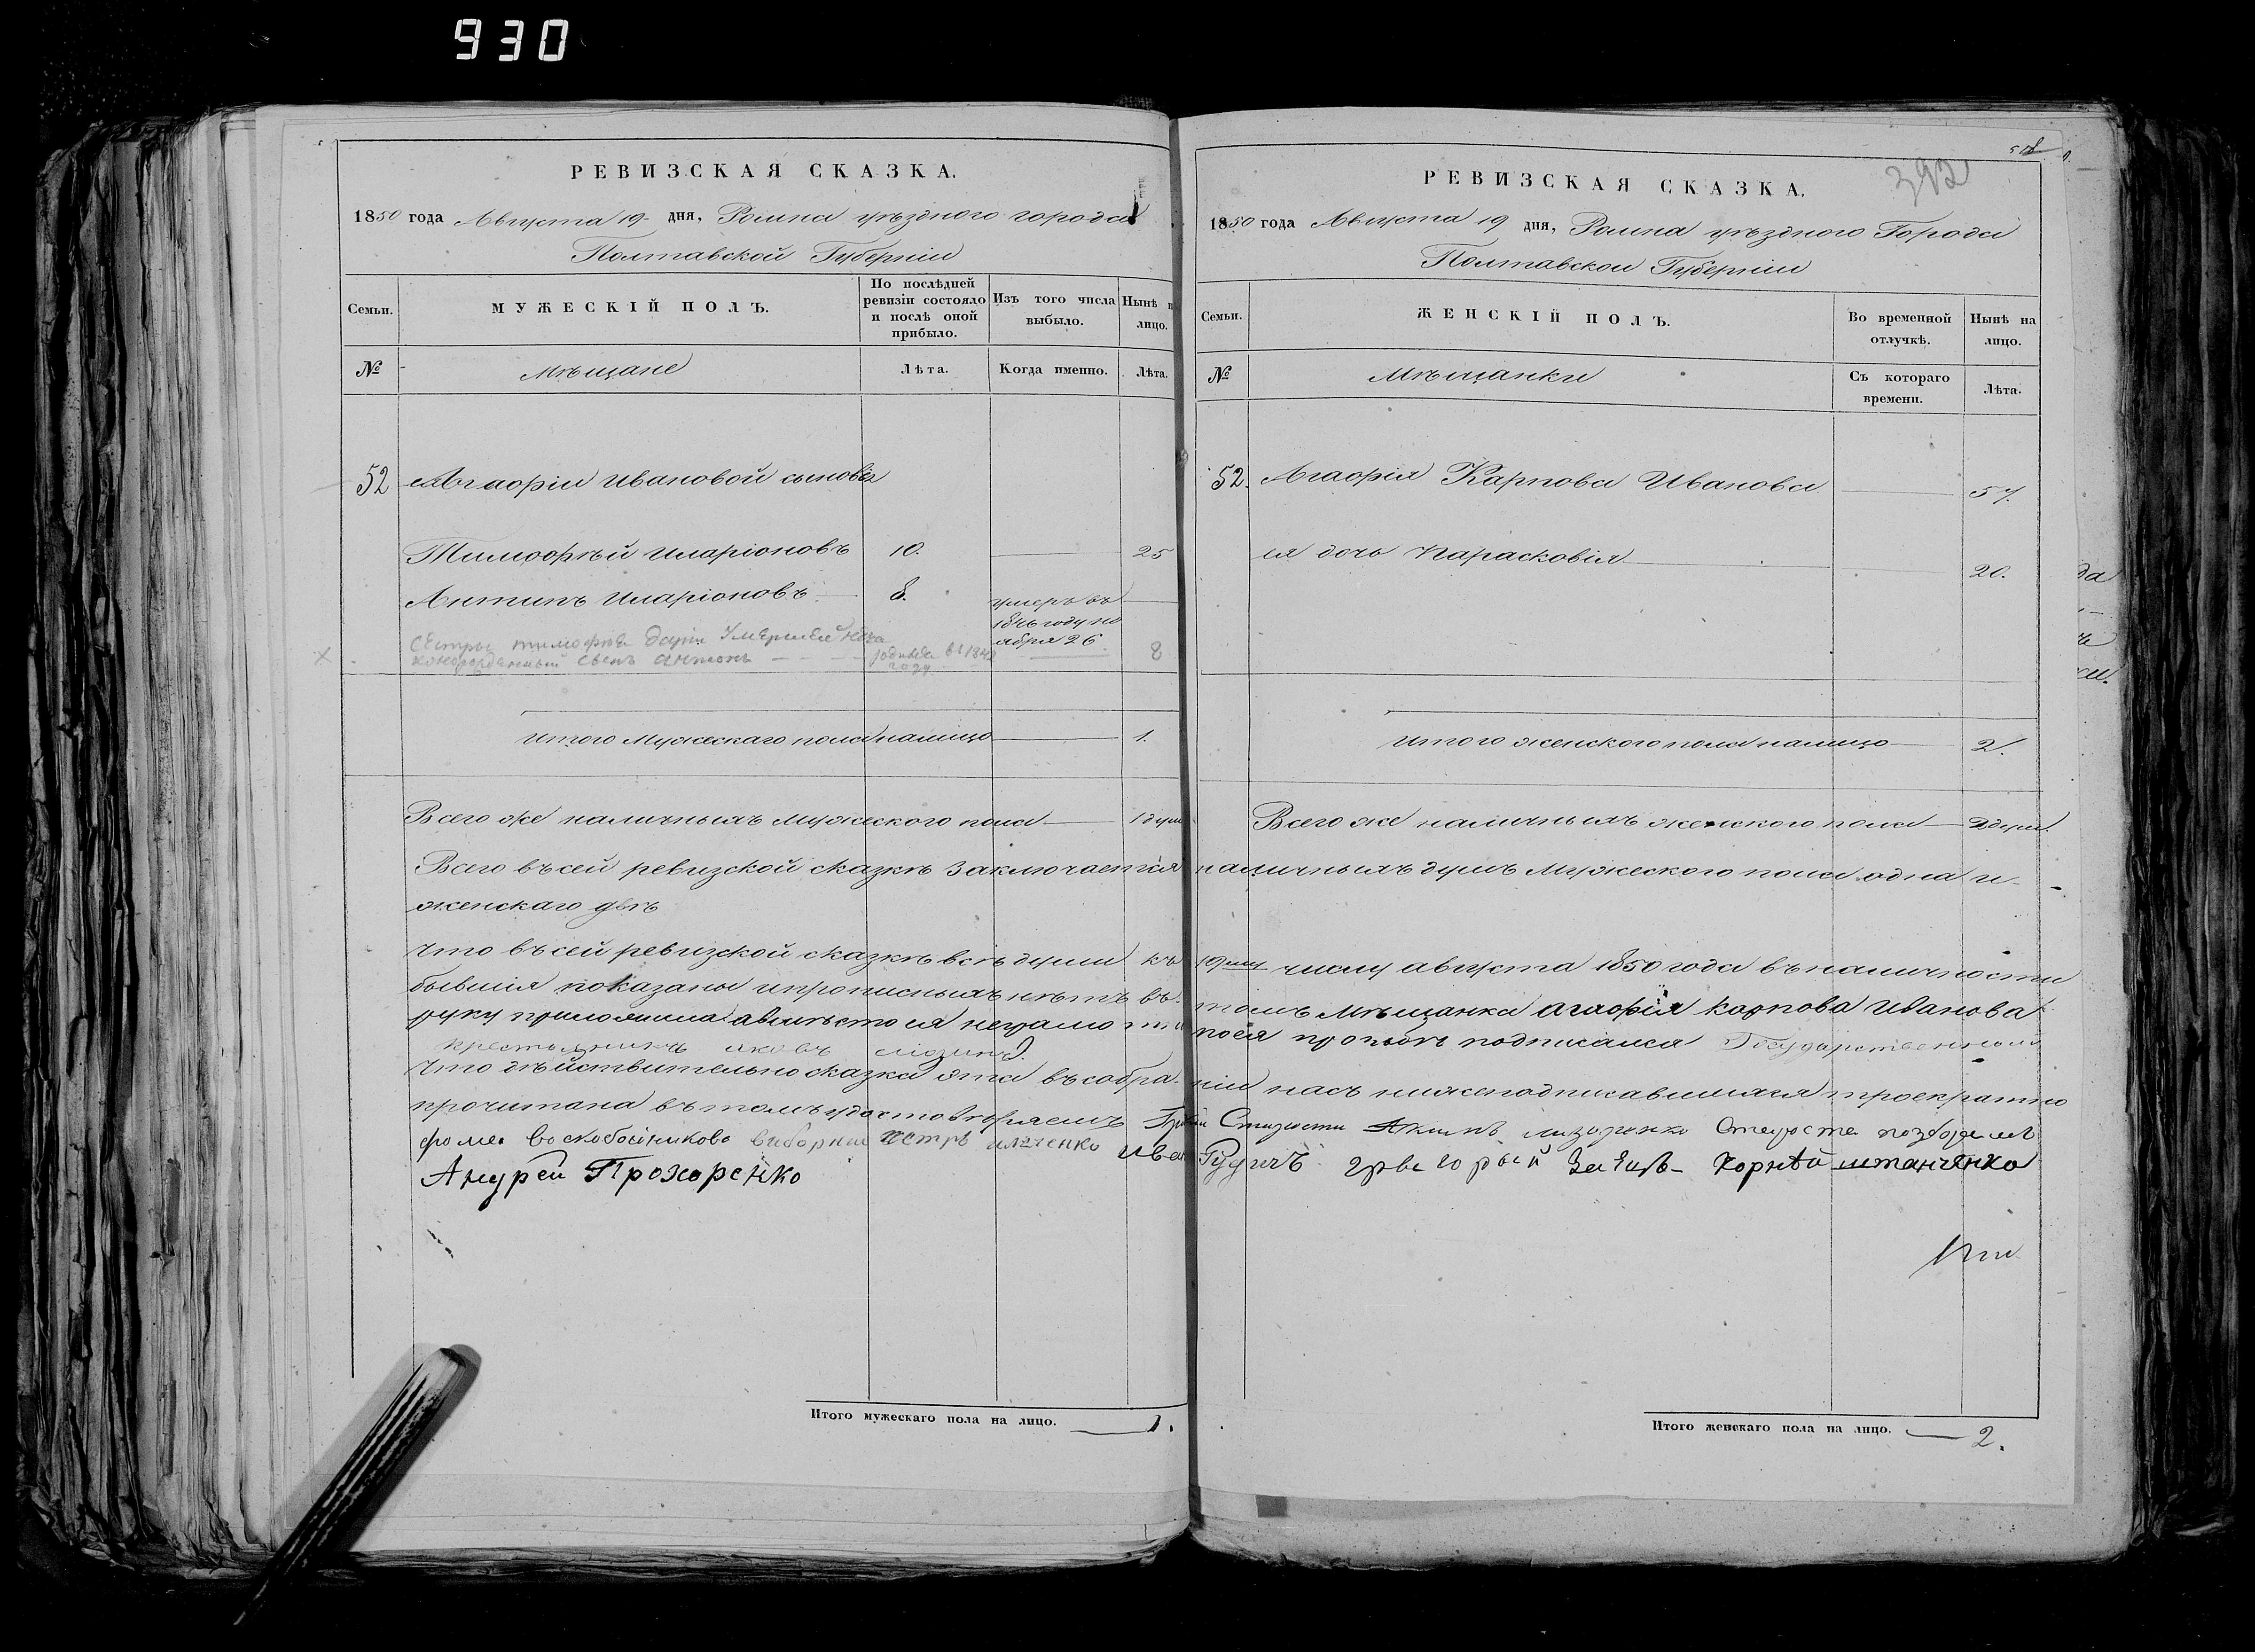 930
РЕВИЗСКАЯ СКАЗКА.
1850 года Августа 19 дня, Ромна уѣзднаго города
Полтавской Губерніи
Семьи.
МУЖЕСКІЙ ПОЛЪ.
По послѣдней ревизіи состояло и послѣ оной прибыло.
Изъ того числа выбыло.
Нынѣ на лицо.
№
Мѣщане
Лѣта.
Когда именно.
Лѣта.
52 Агафіи Ивановой сыновья
Тимофѣй Иларіоновъ 10. 25
Антипъ Иларіоновъ 8. умеръ въ
1846 году но
ября 26
Сестры тимофѣя
сынъ антонъ родился въ 1842 8
году
Итого Мужескаго пола налицо 1.
Всего же наличныхъ мужескаго пола 1 душ
РЕВИЗСКАЯ СКАЗКА.
392
1850 года Августа 19 дня, Ромна уѣзднаго Города
Полтавской Губерніи
Семьи.
ЖЕНСКІЙ ПОЛЪ.
Во временной отлучкѣ.
Нынѣ на лицо.
№
Мѣщанки
Съ котораго времени.
Лѣта.
52. Агафія Карпова Иванова 57.
ея дочь Парасковія 20.
Итого женского пола налицо 2.
Всего же наличныхъ женского пола 2 душ.
Всего въ сей ревизской сказкѣ заключается наличныхъ душъ Мужеского пола одна и
женскаго двѣ
Что въ сей ревизской сказкѣ всѣ души къ 19му числу августа 1850 года въ наличности
бывшія показаны и прописныхъ нѣтъ въ томъ Мѣщанка Агафія карпова Иванова
руку приложила а вмѣсто ея неграмотной подписался Государственный
крестьянинъ яковъ
Что дѣйствительно сказка эта въ собраніи насъ нижеподписавшихся троекратно
прочитана въ томъ удостовѣряемъ Старосты Акимъ Староста
фома воскобойниковъ выборные петръ ильченко Иван Рудичъ Заецъ Корнѣй штанченко
Андрей Прохоренко
Итого мужескаго пола на лицо. 1.
Итого женскаго пола на лицо. 2.